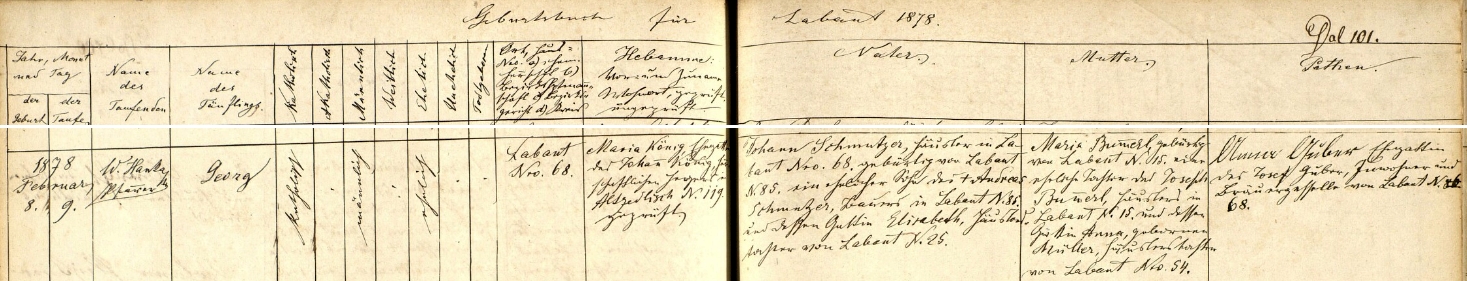 Geburtsbuch für
Labant 1878.
Pol 101.
Jahr, Monat
und Tag
der Geburt
der Taufe
Name
des
Taufenden
Name
des
Täuflings.
Katholisch
Akatholisch
Männlich
Weiblich
Ehelich
Unehelich
Todgeboren
Ort, Haus=
Nro.
Hebamme:
Wohnort, geprüft,
ungeprüft
Vater.
Mutter.
Pathen.
1878
Februar
8. 9.
W. Hanka
Pfarrer
Georg
Katholisch
männlich
ehelich
Labant
Nro. 68.
Maria König Ehegattin
des Johan König,
Altzedlisch N. 119
geprüft
Johann Schmutzer, Häusler in La-
bant Nro. 68. gebürtig von Labant
N. 85. ein ehelicher Sohn des † Andreas
Schmutzer, Bauers in Labant N. 85.
und dessen Gattin Elisabeth, Häuslers-
tochter von Labant N. 26.
Maria Bummerl, gebürtig
von Labant N. 15. eine
eheliche Tochter des Joseph
Bummerl, Häuslers in
Labant N. 15. und dessen
Gattin Anna, geborenen
Müller, Häuslerstochter
von Labant Nro. 54.
Anna Guber Ehegattin
des Josef Guber, Inwohner und
Bräuergeselle von Labant N.
68.